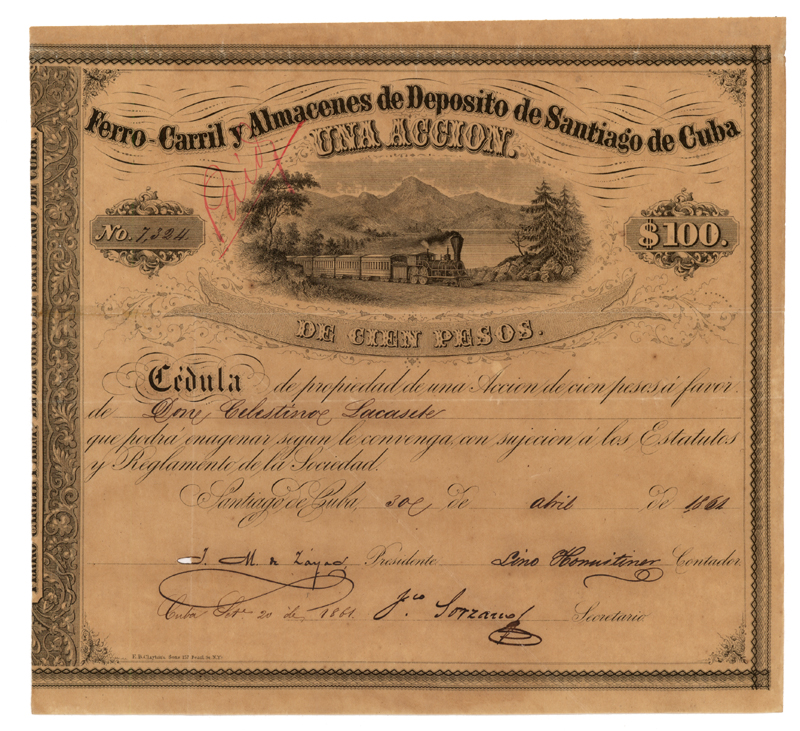 Ferro-Carril y Almacenes de Deposito de Santiago de Cuba
UNA ACCION.
Paid
No. 7,324
$100.
DE CIEN PESOS.
Cédula de propiedad de una Accion de cien pesos á favor
de Don Celestino
que podrá enagenar segun le convenga, con sujecion á los Estatutos
y Reglamento de la Sociedad.
Santiago de Cuba, 30 de abril de 1861
J. M. de Zayas Presidente. Lino Contador
Cuba 20 de 1861. Sorzano Secretario